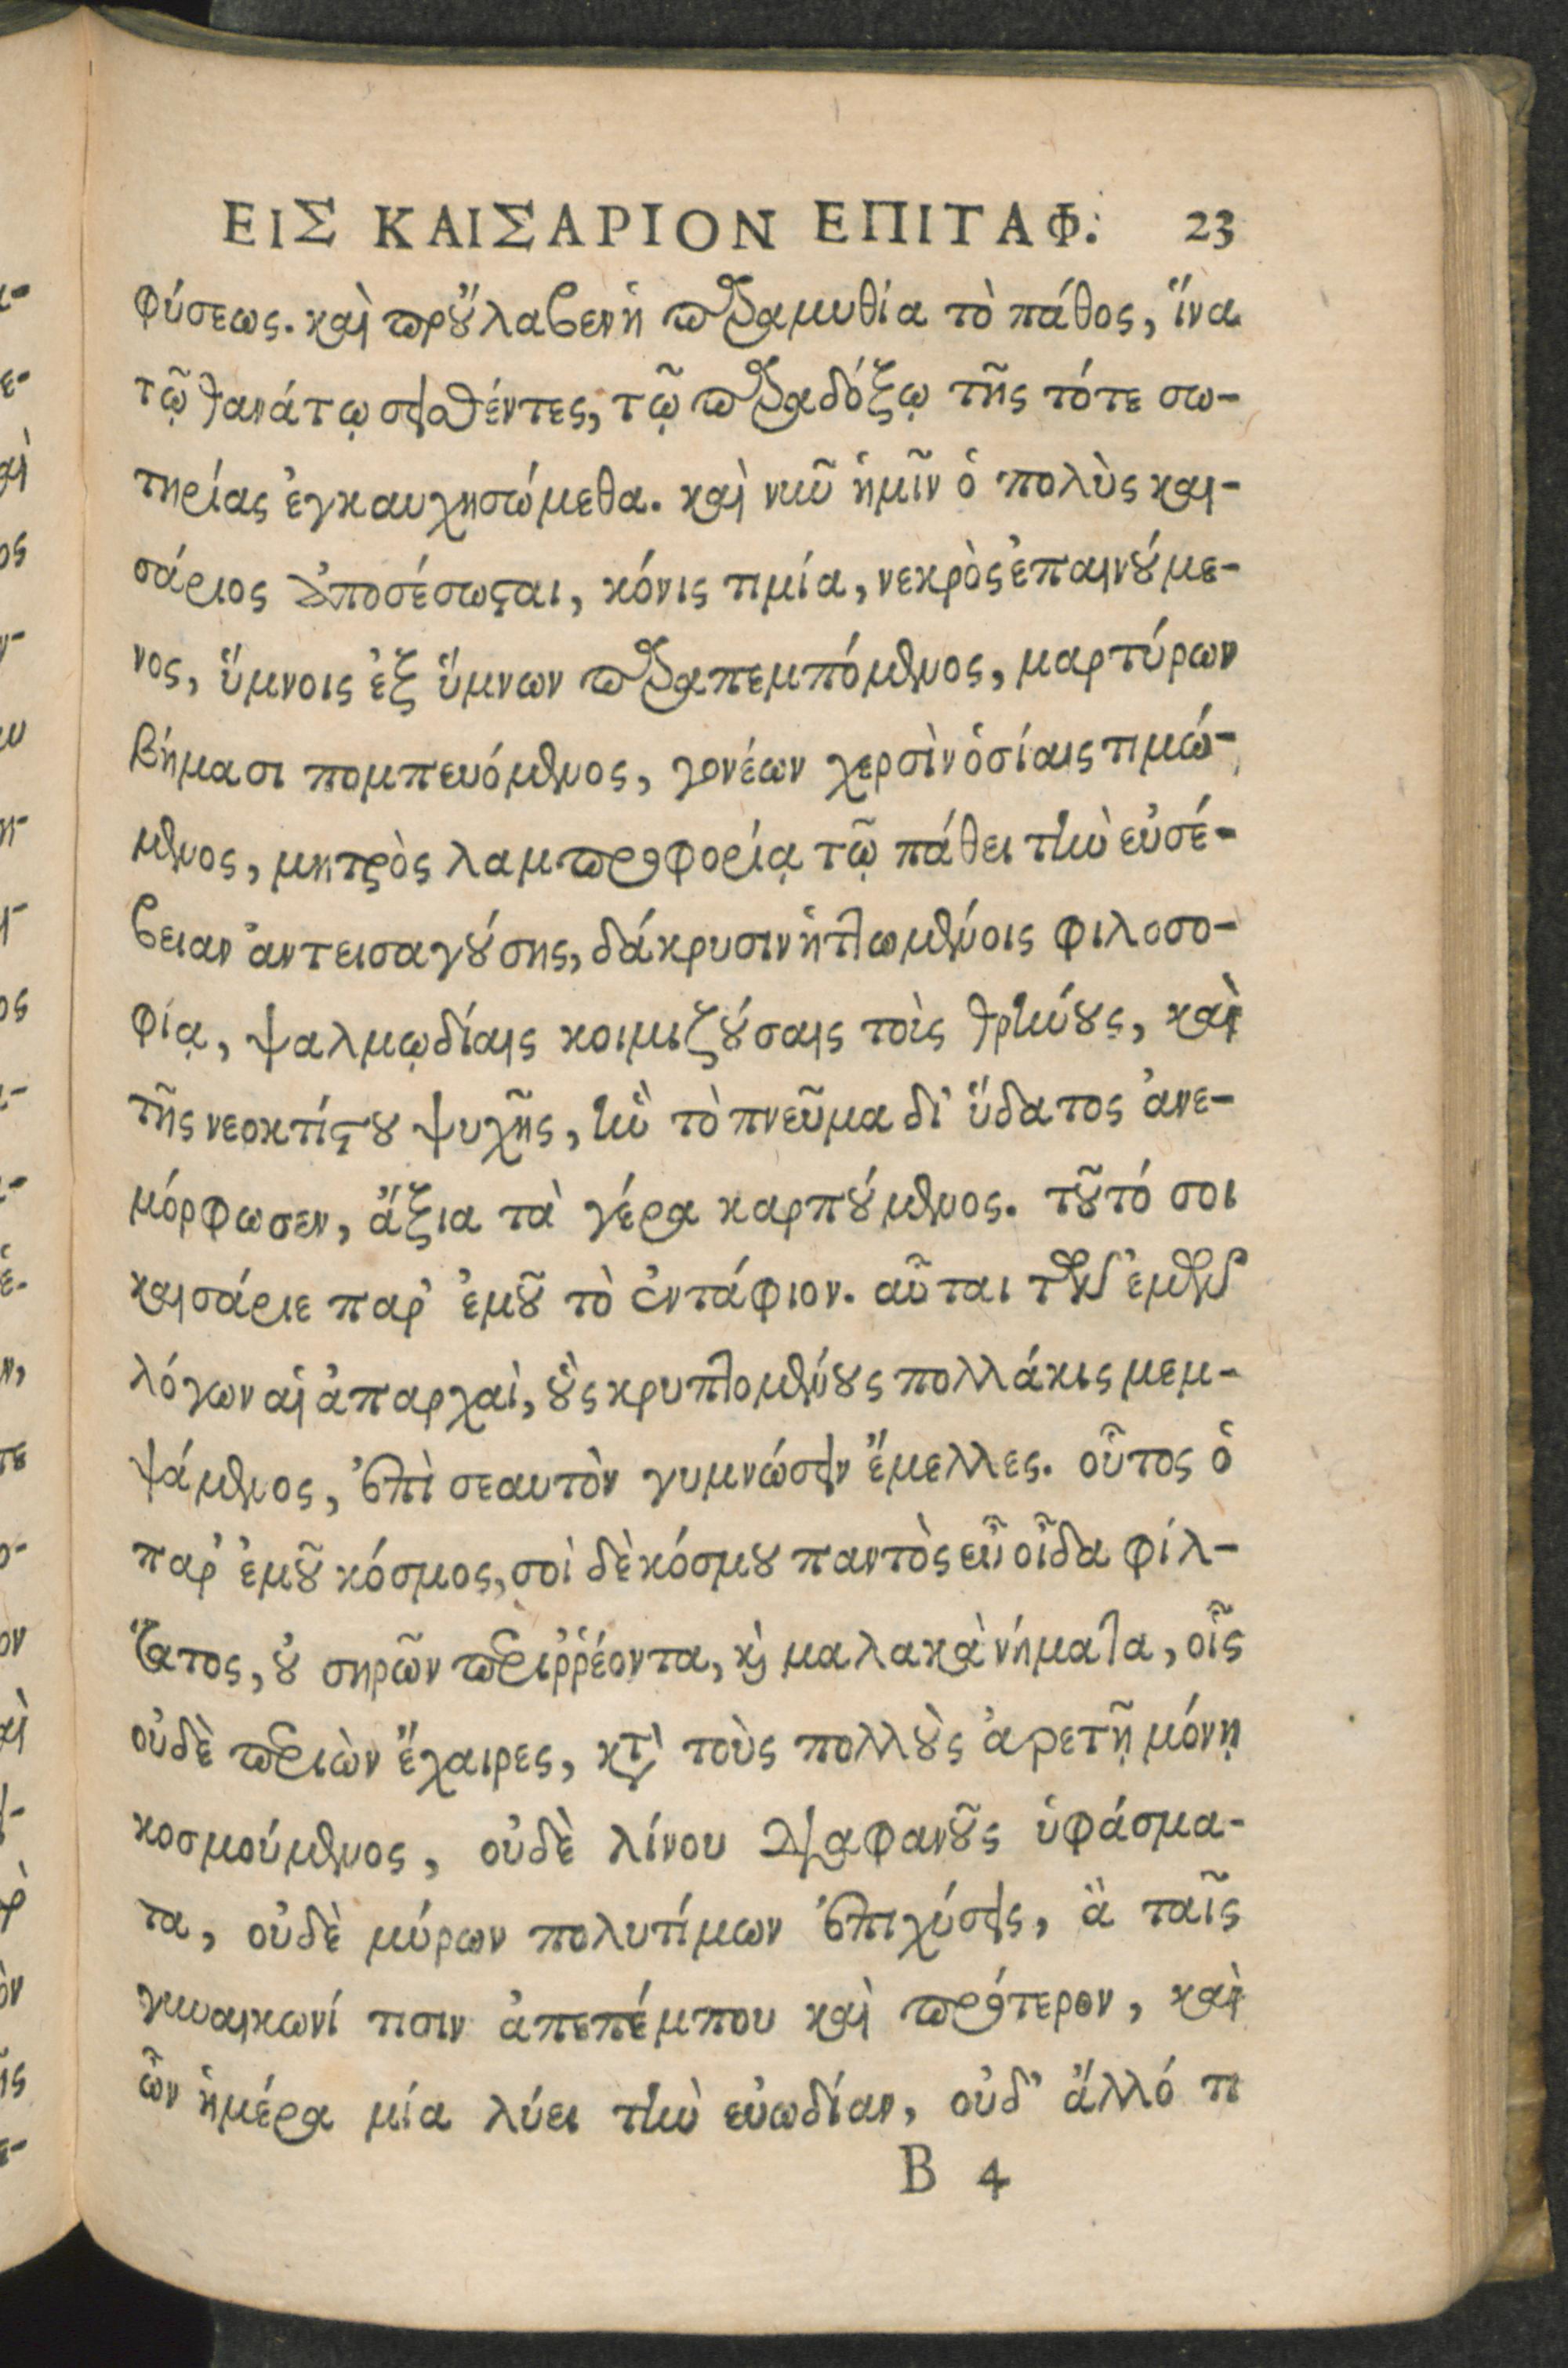 ΕΙΣ ΚΑΙΣΑΡΙΟΝ ΕΠΙΤΑΦ. 23
φύσεως. καὶ προὔλαβεν ἡ παραμυθία τὸ πάθος, ἵνα
τῷ θανάτῳ σεισθέντες, τῷ παραδόξῳ τῆς τότε σω-
τηρίας ἐγκαυχησώμεθα. καὶ νῦν ἡμῖν ὁ πολὺς και-
σάριος ἀποσέσωσται, κόνις τιμία, νεκρὸς ἐπαινούμε-
νος, ὕμνοις ἐξ ὕμνων παραπεμπόμενος, μαρτύρων
βήμασι πομπευόμενος, γονέων χερσὶν ὁσίαις τιμώ-
μενος, μητρὸς λαμπροφορίᾳ τῷ πάθει τὴν εὐσέ-
βειαν ἀντεισαγούσης, δάκρυσιν ἡττωμένοις φιλοσο-
φίᾳ, ψαλμῳδίαις κοιμιζούσαις τοὶς θρήνους, καὶ
τῆς νεοκτίστου ψυχῆς, ἣν τὸ πνεῦμα δι' ὕδατος ἀνε-
μόρφωσεν, ἄξια τὰ γέρα καρπούμενος. τοῦτό σοι
καισάριε παρ' ἐμοῦ τὸ ἐντάφιον. αὗται τῶν ἐμῶν
λόγων αἱ ἀπαρχαὶ, οὓς κρυπτομένους πολλάκις μεμ-
ψάμενος, ἐπὶ σεαυτὸν γυμνώσειν ἔμελλες. οὗτος ὁ
παρ' ἐμοῦ κόσμος, σοὶ δὲ κόσμου παντὸς εὖ οἶδα φίλ-
τατος, οὐ σηρῶν περιῤῥέοντα, καὶ μαλακὰ νήματα, οἷς
οὐδὲ περιὼν ἔχαιρες, κατὰ τοὺς πολλοὺς ἀρετῇ μόνῃ
κοσμούμενος, οὐδὲ λίνου διαφανοῦς ὑφάσμα-
τα, οὐδὲ μύρων πολυτίμων ἐπιχύσεις, ἃ ταῖς
γυναικωνί τισιν ἀπεπέμπου καὶ πρότερον, καὶ
ὧν ἡμέρα μία λύει τὴν εὐωδίαν, οὐδ' ἄλλό τι
B 4